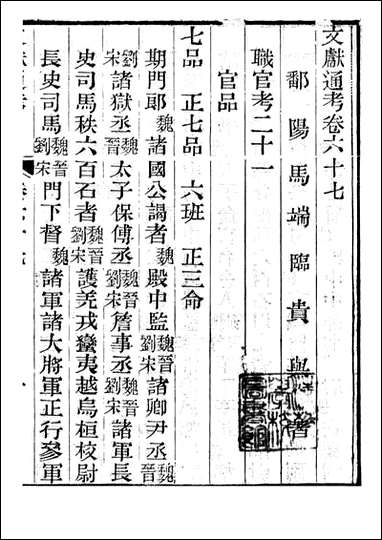 文獻通考卷六十七
鄱陽馬端臨貴與
職官考二十一
官品
七品 正七品 六班 正三命
期門郎魏諸國公謁者魏殿中監魏晉劉宋諸卿尹丞魏晉
劉宋諸獄丞魏晉太子保傅丞魏晉劉宋詹事丞魏晉劉宋諸軍長
史司馬秩六百石者魏晉劉宋護羌戎蠻夷越烏桓校尉
長史司馬魏晉劉宋門下督魏晉諸軍諸大將軍正行參軍